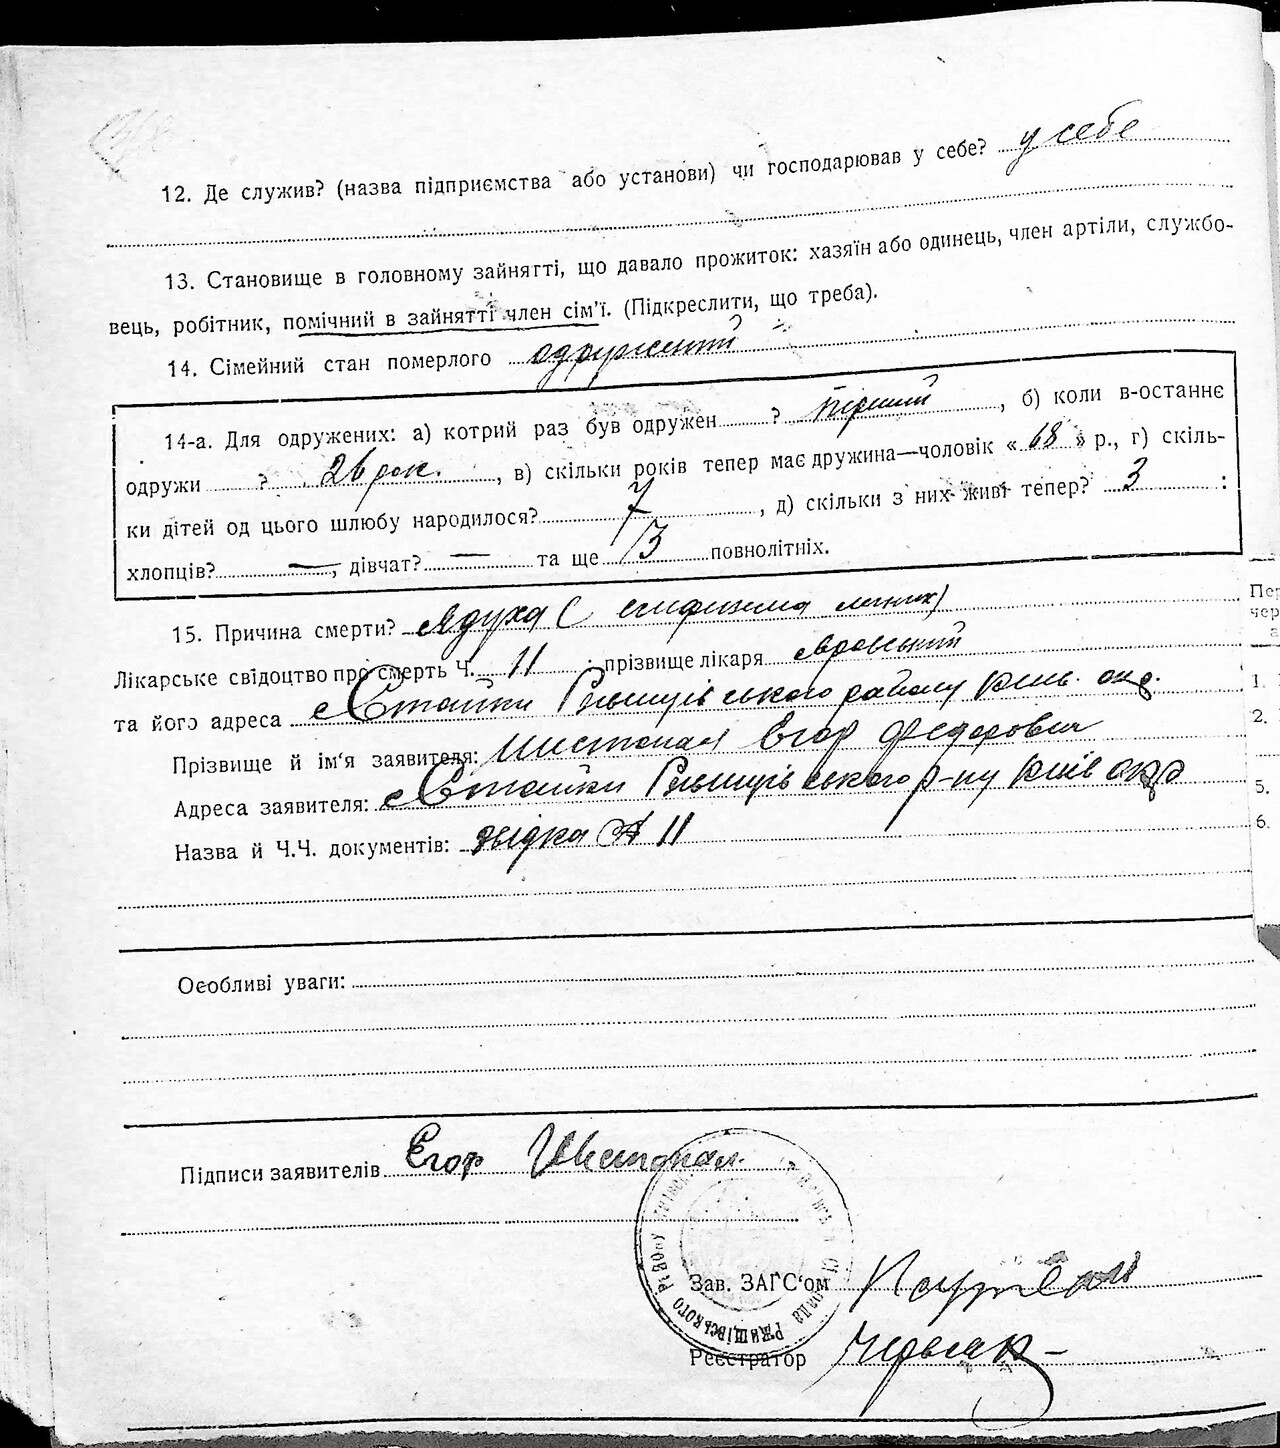 12. Де служив? (назва підприємства або установи) чи господарював у себе? у себе
13. Становище в головному зайнятті, що давало прожиток: хазяїн або одинець, член артіли, службо-
вець, робітник, помічний в зайнятті член сім'ї. (Підкреслити, що треба).
14. Сімейний стан померлого одружений
14-а. Для одружених: а) котрий раз був одружен ? перший, б) коли в-останнє
одружи ? 26 рок., в) скільки років тепер має дружина—чоловік « 68 » р., г) скіль-
ки дітей од цього шлюбу народилося? 7, д) скільки з них живі тепер? 3 :
хлопців? —, дівчат? — та ще 3 повнолітніх.
15. Причина смерти? Ядуха (емфизема легких)
Лікарське свідоцтво про смерть Ч. 11 прізвище лікаря
та його адреса с Стайки Ржищівського району Київ. окр.
Прізвище й ім'я заявителя: Шестопал Єгор Федорович
Адреса заявителя: с Стайки Ржищівського р-ну Київ окр
Назва й Ч.Ч. документів: звідка № 11
Особливі уваги:
Підписи заявителів Єгор Шестопал
Зав. ЗАГС'ом
РЖИЩІВСЬКОГО РАЙОНУ
Реєстратор
Пер
чер
а
1.
2.
5.
6.